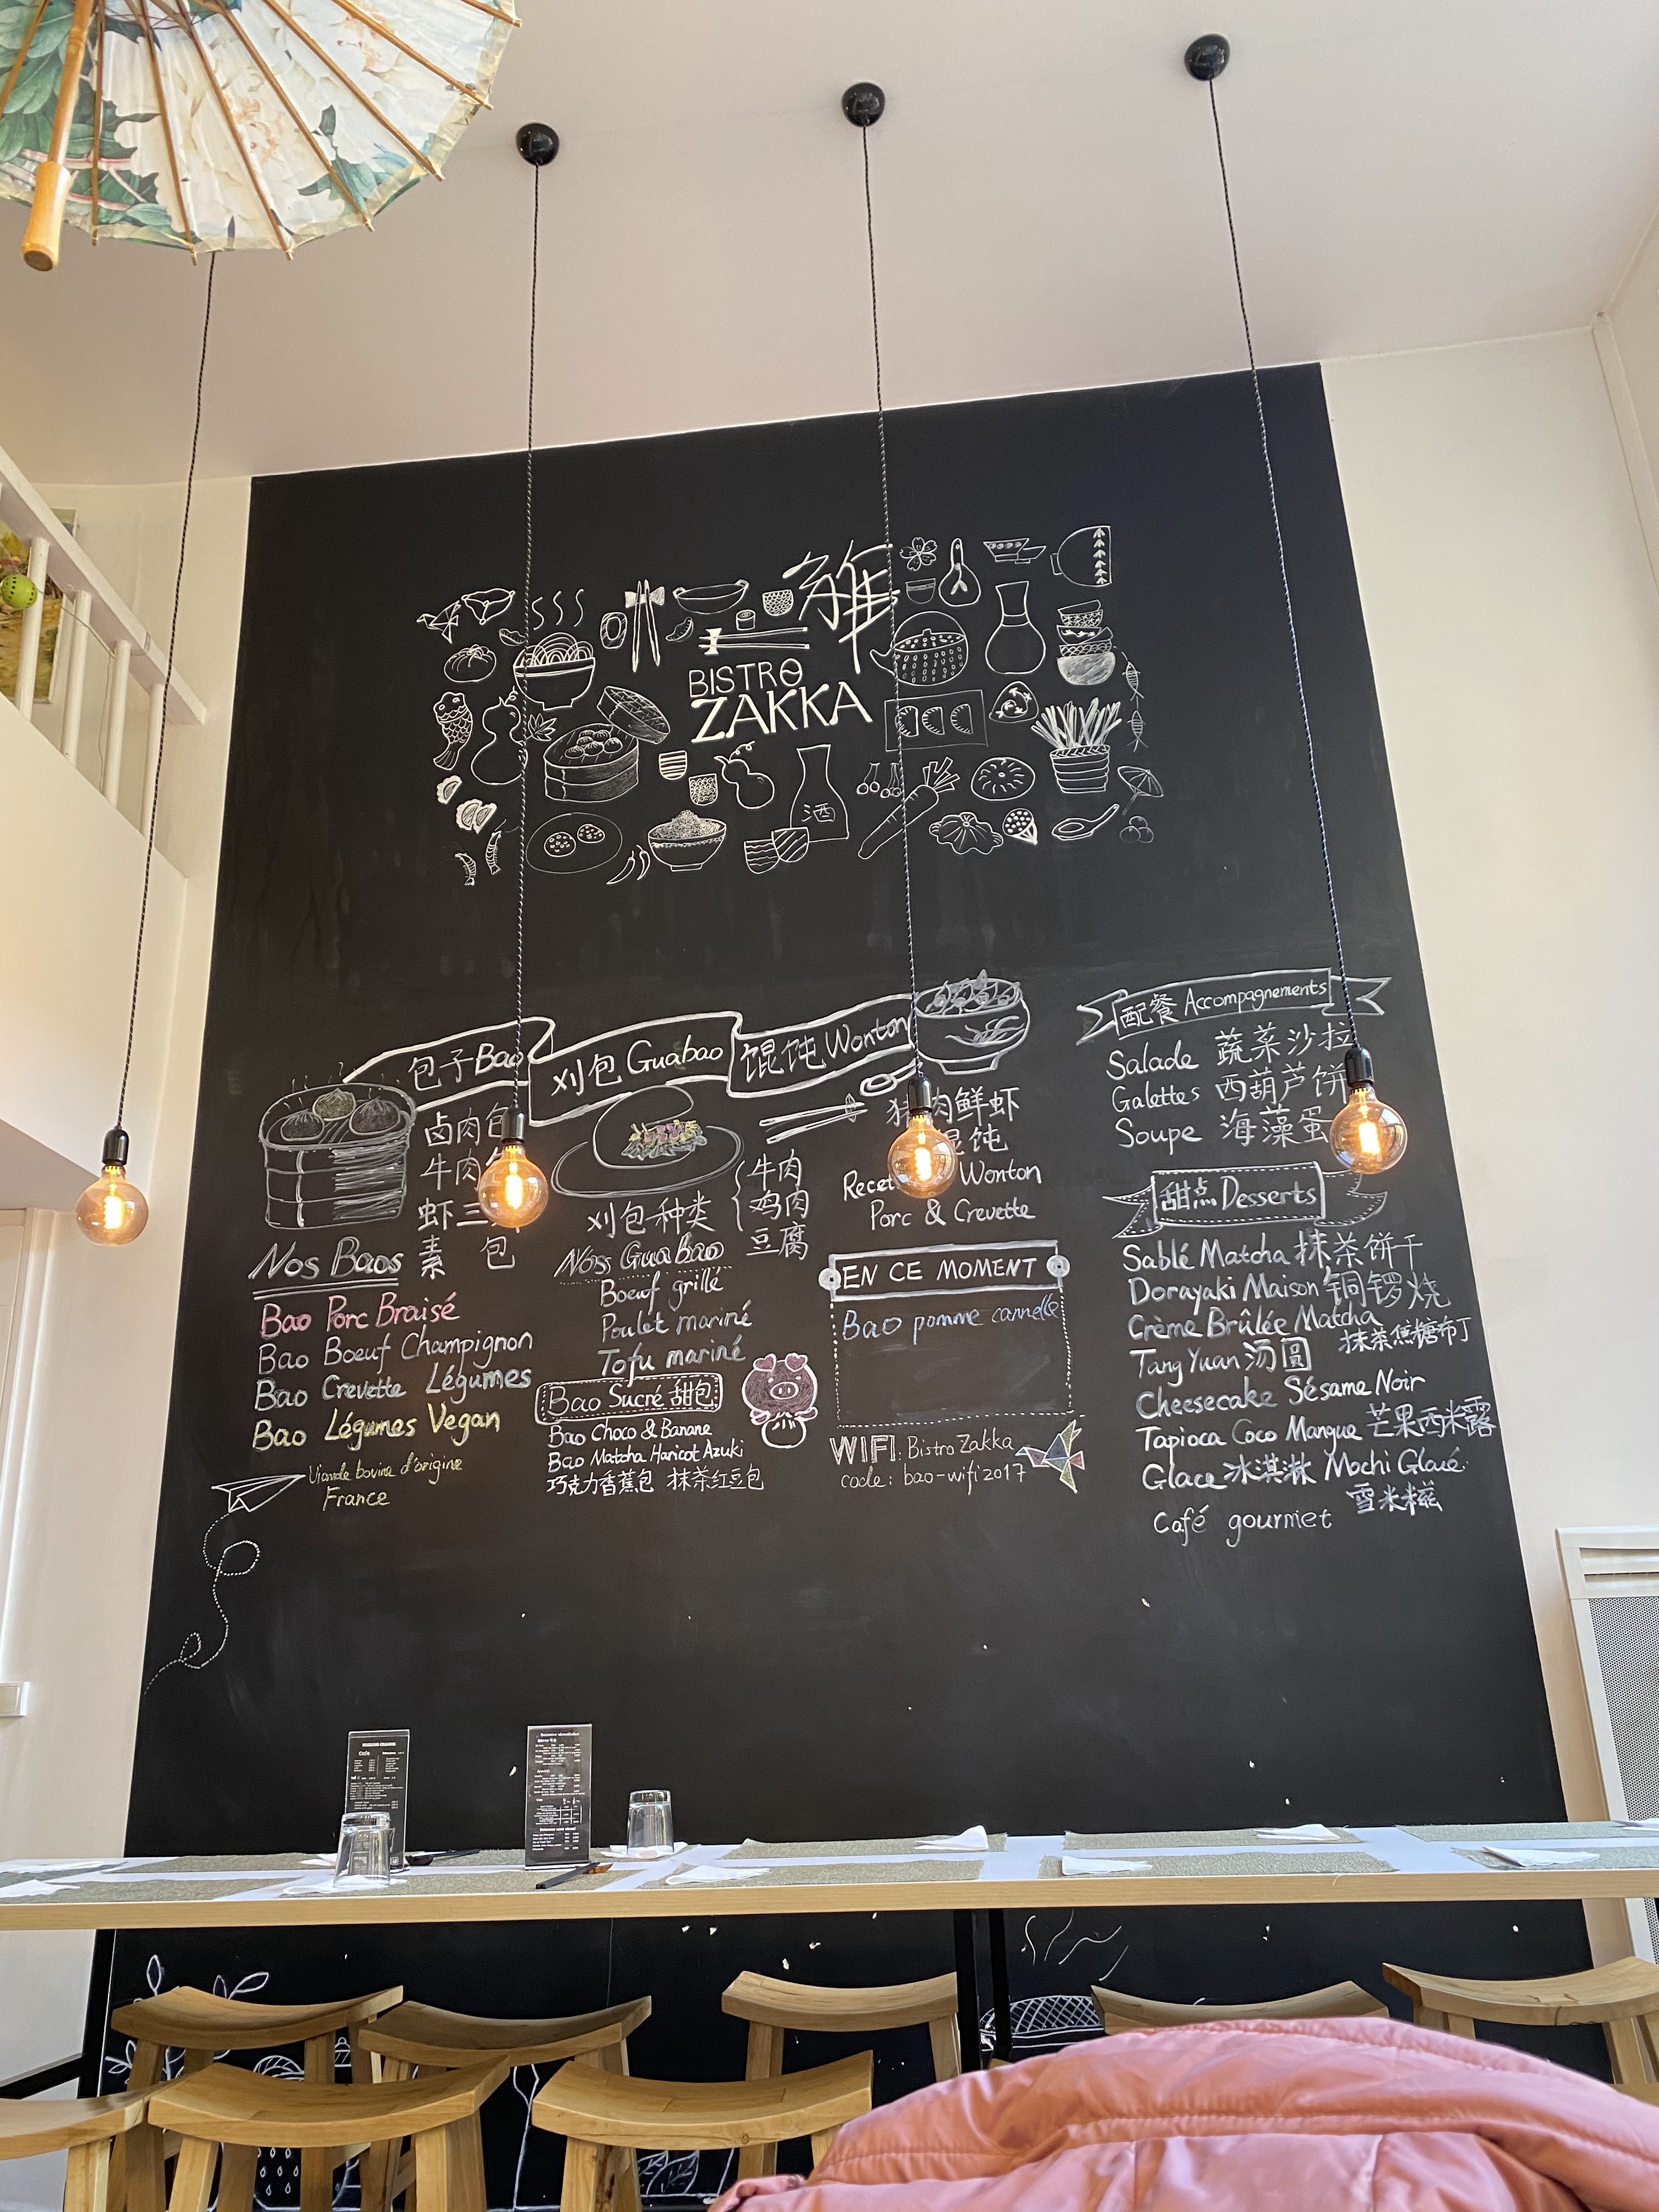 雜
BISTRO
ZAKKA
酒
包子 Bao
刈包 Guabao
馄饨 Wonton
卤肉包
牛肉
虾三
素 包
Nos Baos
Bao Porc Braisé
Bao Boeuf Champignon
Bao Crevette Légumes
Bao Légumes Vegan
Viande bovine d'origine
France
牛肉
鸡肉
豆腐
刈包种类
Nos Gua Bao
Boeuf grillé
Poulet mariné
Tofu mariné
Bao Sucré 甜包
Bao Choco & Banane
Bao Matcha Haricot Azuki
巧克力香蕉包 抹茶红豆包
猪肉鲜虾
馄饨
Wonton
Porc & Crevette
EN CE MOMENT
Bao pomme cannelle
WIFI: Bistro Zakka
code: bao-wifi2017
配餐 Accompagnements
Salade 蔬菜沙拉
Galettes 西葫芦饼
Soupe 海藻蛋
甜点 Desserts
Sablé Matcha 抹茶饼干
Dorayaki Maison 铜锣烧
Crème Brûlée Matcha
抹茶焦糖布丁
Tang Yuan 汤圆
Cheesecake Sésame Noir
Tapioca Coco Mangue 芒果西米露
Glace 冰淇淋 Mochi Glacé
雪米糍
Café gourmet